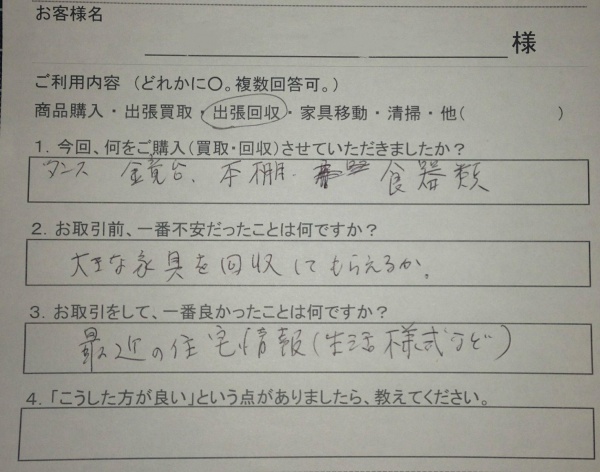 お客様名
様
ご利用内容 (どれかに〇。複数回答可。)
商品購入・出張買取・出張回収・家具移動・清掃・他( )
1. 今回、何をご購入(買取・回収)させていただきましたか?
タンス 鏡台、本棚、 食器類
2. お取引前、一番不安だったことは何ですか?
大きな家具を回収してもらえるか。
3. お取引をして、一番良かったことは何ですか?
最近の住宅情報(生活様式など)
4. 「こうした方が良い」という点がありましたら、教えてください。